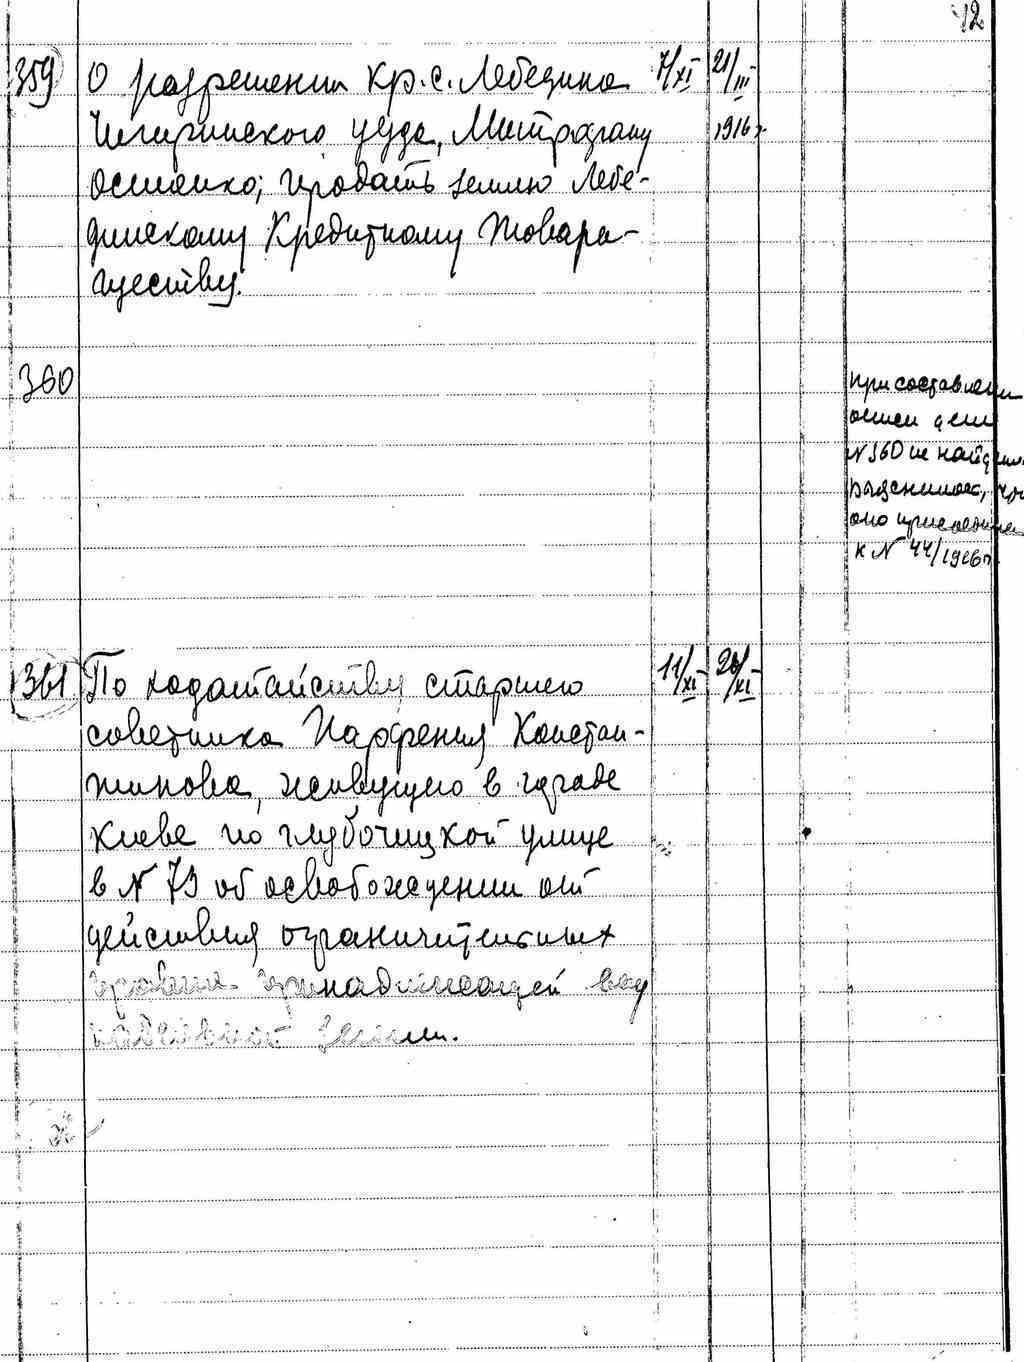 12
359 О разрешении кр. с. Лебедина 7/XI 21/III
Чигиринского уезда, Митрофану 1916 г.
Остапко, продать землю Лебе-
динскому Кредитному Товари-
ществу.
360
При составлении
описи дело
N 360 не найдено
выяснилось, что
оно присоединено
к N 44/1916 г.
361 По ходатайству старшего 11/XI 20/XI
советника Парфения Констан-
тинова, живущего в городе
Киеве по Глубочицкой улице
в N 73 об освобождении от
действия ограничительных
правил принадлежащей ему
земли.